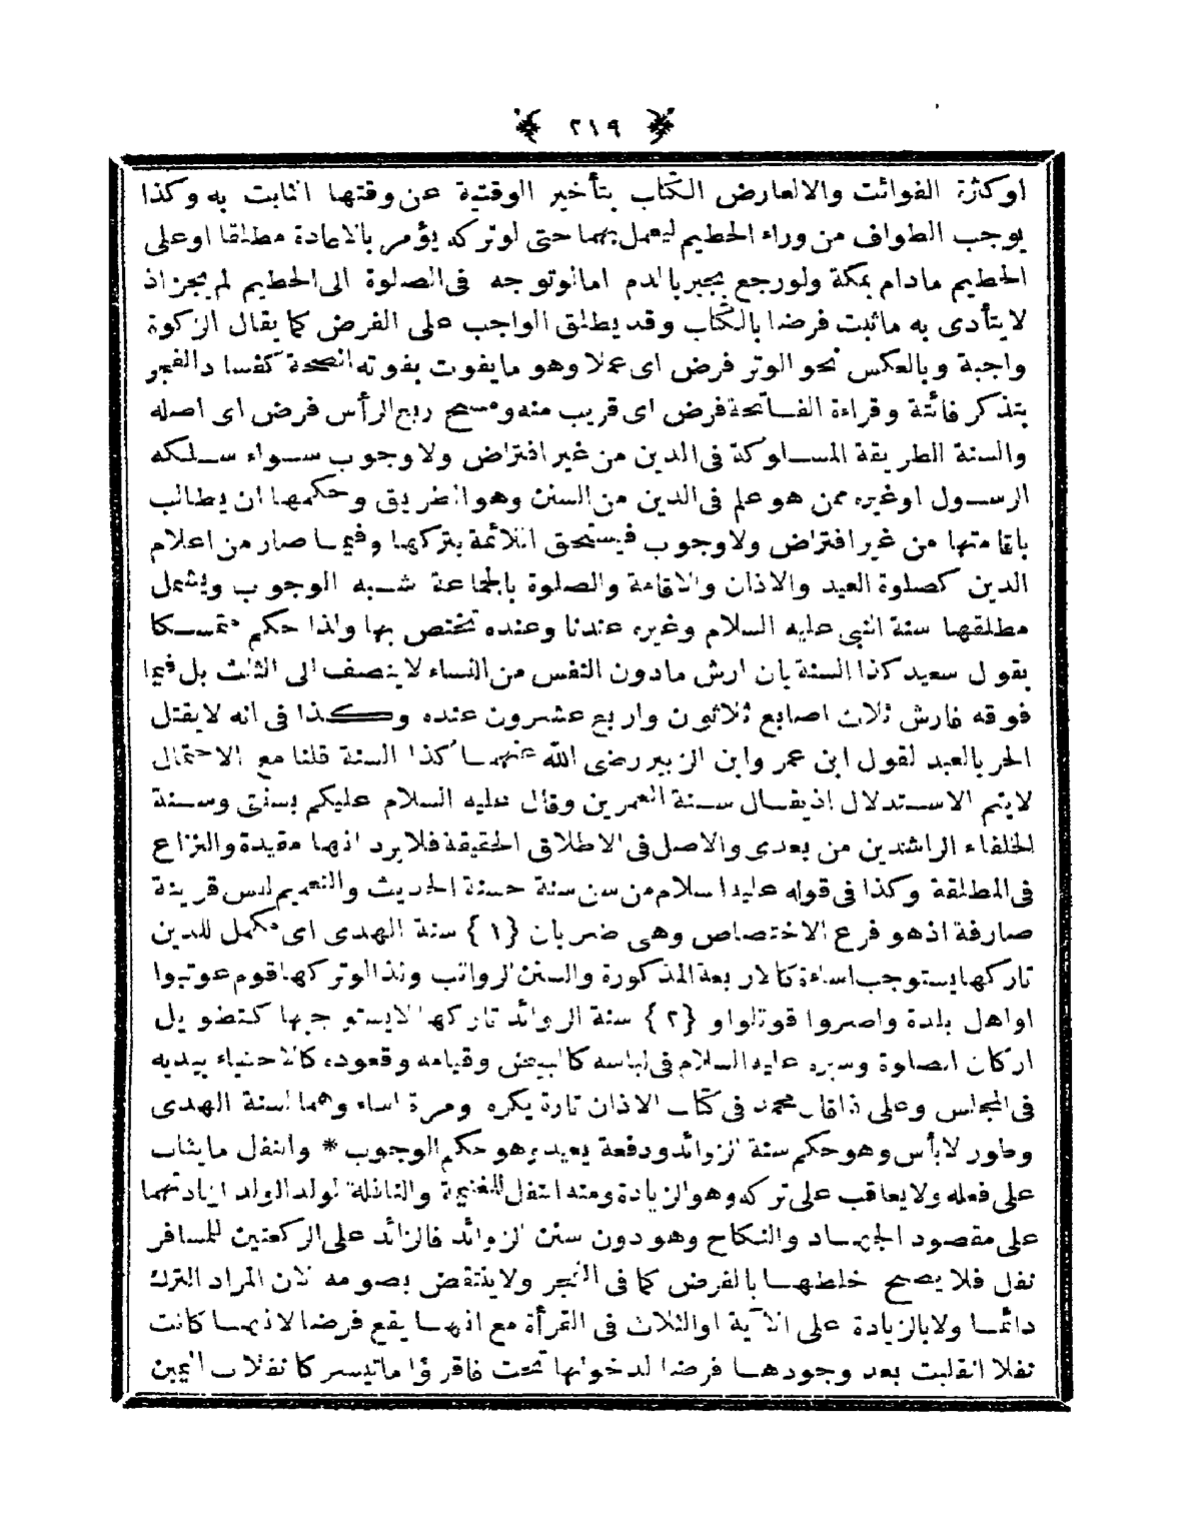 ﴿ ٢١٩ ﴾
اوكثرة الفوائت والالعارض الكتاب بتأخير الوقتية عن وقتها الثابت به وكذا
يوجب الطواف من وراء الحطيم ليعمل بهما حتى لوتركه يؤمر بالاعادة مطلقا اوعلى
الحطيم مادام بمكة ولورجع يجبر بالدم امالوتوجه فى الصلوة الى الحطيم لم يجز اذ
لايتأدى به ماثبت فرضا بالكتاب وقد يطلق الواجب على الفرض كما يقال الزكوة
واجبة وبالعكس نحو الوتر فرض اى عملا وهو مايفوت بفوته الصحة كفساد الفجر
بتذكر فائتة وقراءة الفاتحة فرض اى قريب منه ومسح ربع الرأس فرض اى اصله
والسنة الطريقة المسلوكة فى الدين من غير افتراض ولاوجوب سواء سلكه
الرسول اوغيره ممن هو علم فى الدين من السنن وهو الطريق وحكمها ان يطالب
باقامتها من غير افتراض ولاوجوب فيستحق اللائمة بتركها وفيما صار من اعلام
الدين كصلوة العيد والاذان والاقامة والصلوة بالجماعة شبه الوجوب ويشمل
مطلقها سنة النبى عليه السلام وغيره عندنا وعنده تختص بها ولذا حكم متمسكا
بقول سعيد كذا السنة بان ارش مادون النفس من النساء لاينصف الى الثلث بل فيما
فوقه فارش ثلاث اصابع ثلاثون واربع عشرون عنده وكذا فى انه لايقتل
الحر بالعبد لقول ابن عمر وابن الزبير رضى الله عنهما كذا السنة قلنا مع الاحتمال
لايتم الاستدلال اذيقال سنة العمرين وقال عليه السلام عليكم بسنتى وسنة
الخلفاء الراشدين من بعدى والاصل فى الاطلاق الحقيقة فلايرد انها مقيدة والنزاع
فى المطلقة وكذا فى قوله عليه السلام من سن سنة حسنة الحديث والتعميم ليس قرينة
صارفة اذهو فرع الاختصاص وهى ضربان {١} سنة الهدى اى مكمل للدين
تاركها يستوجب اساءة كالاربعة المذكورة والسنن الرواتب ولذا لوتركها قوم عوتبوا
اواهل بلدة واصروا قوتلواو {٢} سنة الزوائد تاركها لايستوجبها كتطويل
اركان الصلوة وسيره عليه السلام فى لباسه كالبيض وقيامه وقعوده كالاحتباء بيديه
فى المجالس وعلى ذا قال محمد فى كتاب الاذان تارة يكره ومرة اساء وهما لسنة الهدى
وطور لابأس وهو حكم سنة الزوائد ودفعة يعيد وهو حكم الوجوب * والنفل مايثاب
على فعله ولايعاقب على تركه وهو الزيادة ومنه النفل للغنيمة والنافلة لولد الولد لزيادتهما
على مقصود الجهاد والنكاح وهو دون سنن الزوائد فالزائد على الركعتين للمسافر
نفل فلايصح خلطها بالفرض كما فى الفجر ولاينتقض بصومه لان المراد الترك
دائما ولابالزيادة على الآية اوالثلاث فى القرأة مع انها يقع فرضا لانها كانت
نفلا انقلبت بعد وجودها فرضا لدخولها تحت فاقرؤا ماتيسر كانقلاب اليمين